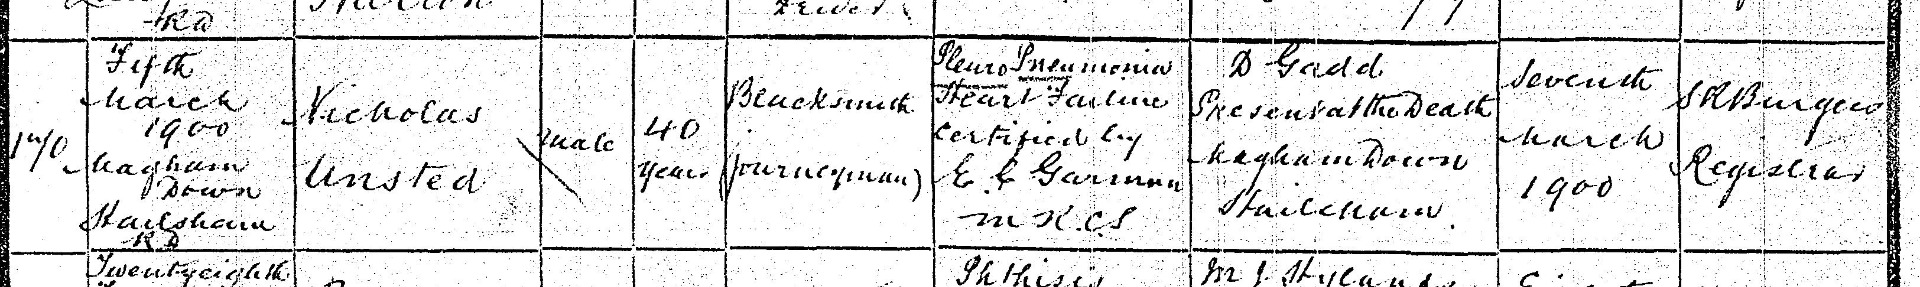 RD
Fifth
March
1900
Magham
Down
Hailsham
RD
Nicholas
Unsted
Male
40
years
Blacksmith
(Journeyman)
Pleuro Pneumonia
Heart Failure
Certified by
E C Garman
M R.C.S
D Gadd
Present at the Death
Magham Down
Hailsham.
Seventh
March
1900
S R Burgess
Registrar
Twentyeighth
Phthisis